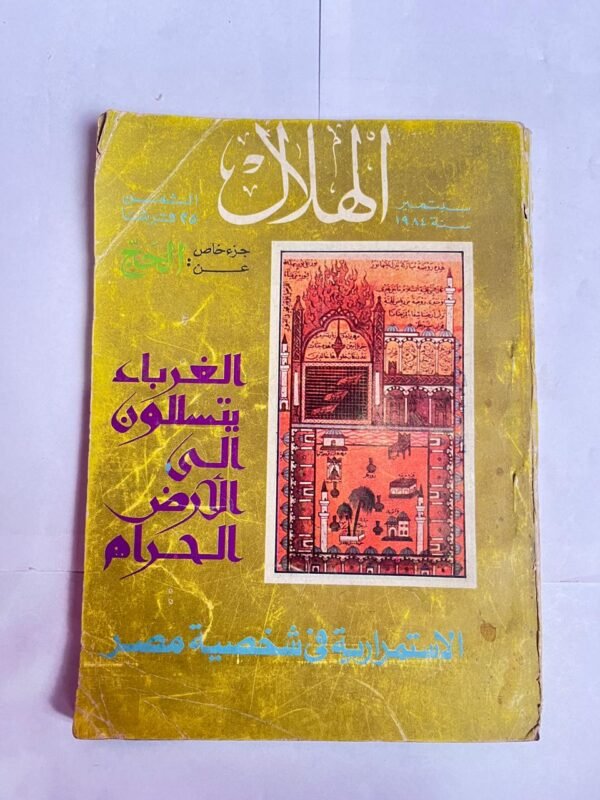 الهلال
سبتمبر
سنة ١٩٨٤
الثمن
٢٥ قرشا
جزء خاص
عن:
الحج
الغرباء
يتسللون
الى
الأرض
الحرام
الاستمرارية فى شخصية مصر